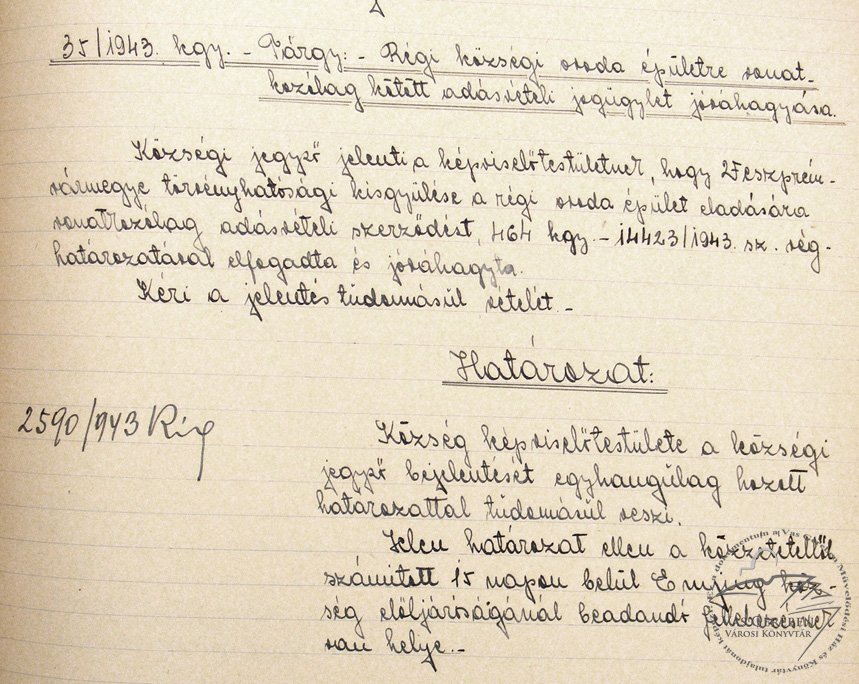 35/1943. kgy. - Tárgy: - Régi községi ovoda épületre vonat-
kozólag kötött adásvételi jogügylet jóváhagyása.
Községi jegyző jelenti a képviselőtestületnek, hogy Veszprém-
vármegye törvényhatósági kisgyűlése a régi ovoda épület eladására
vonatkozólag adásvételi szerződést, 464 kgy. - 14423/1943. sz. vég-
határozatával elfogadta és jóváhagyta.
Kéri a jelentés tudomásúl vételét. -
Határozat:
2590/943
Község képviselőtestülete a községi
jegyző bejelentését egyhangúlag hozott
határozattal tudomásúl veszi.
Jelen határozat ellen a közzétételtől
számított 15 napon belül Enying köz-
ség elöljáróságánál beadandó fellebezésnek
van helye. -
VÁROSI KÖNYVTÁR
Művelődési Ház és Könyvtár tulajdonát